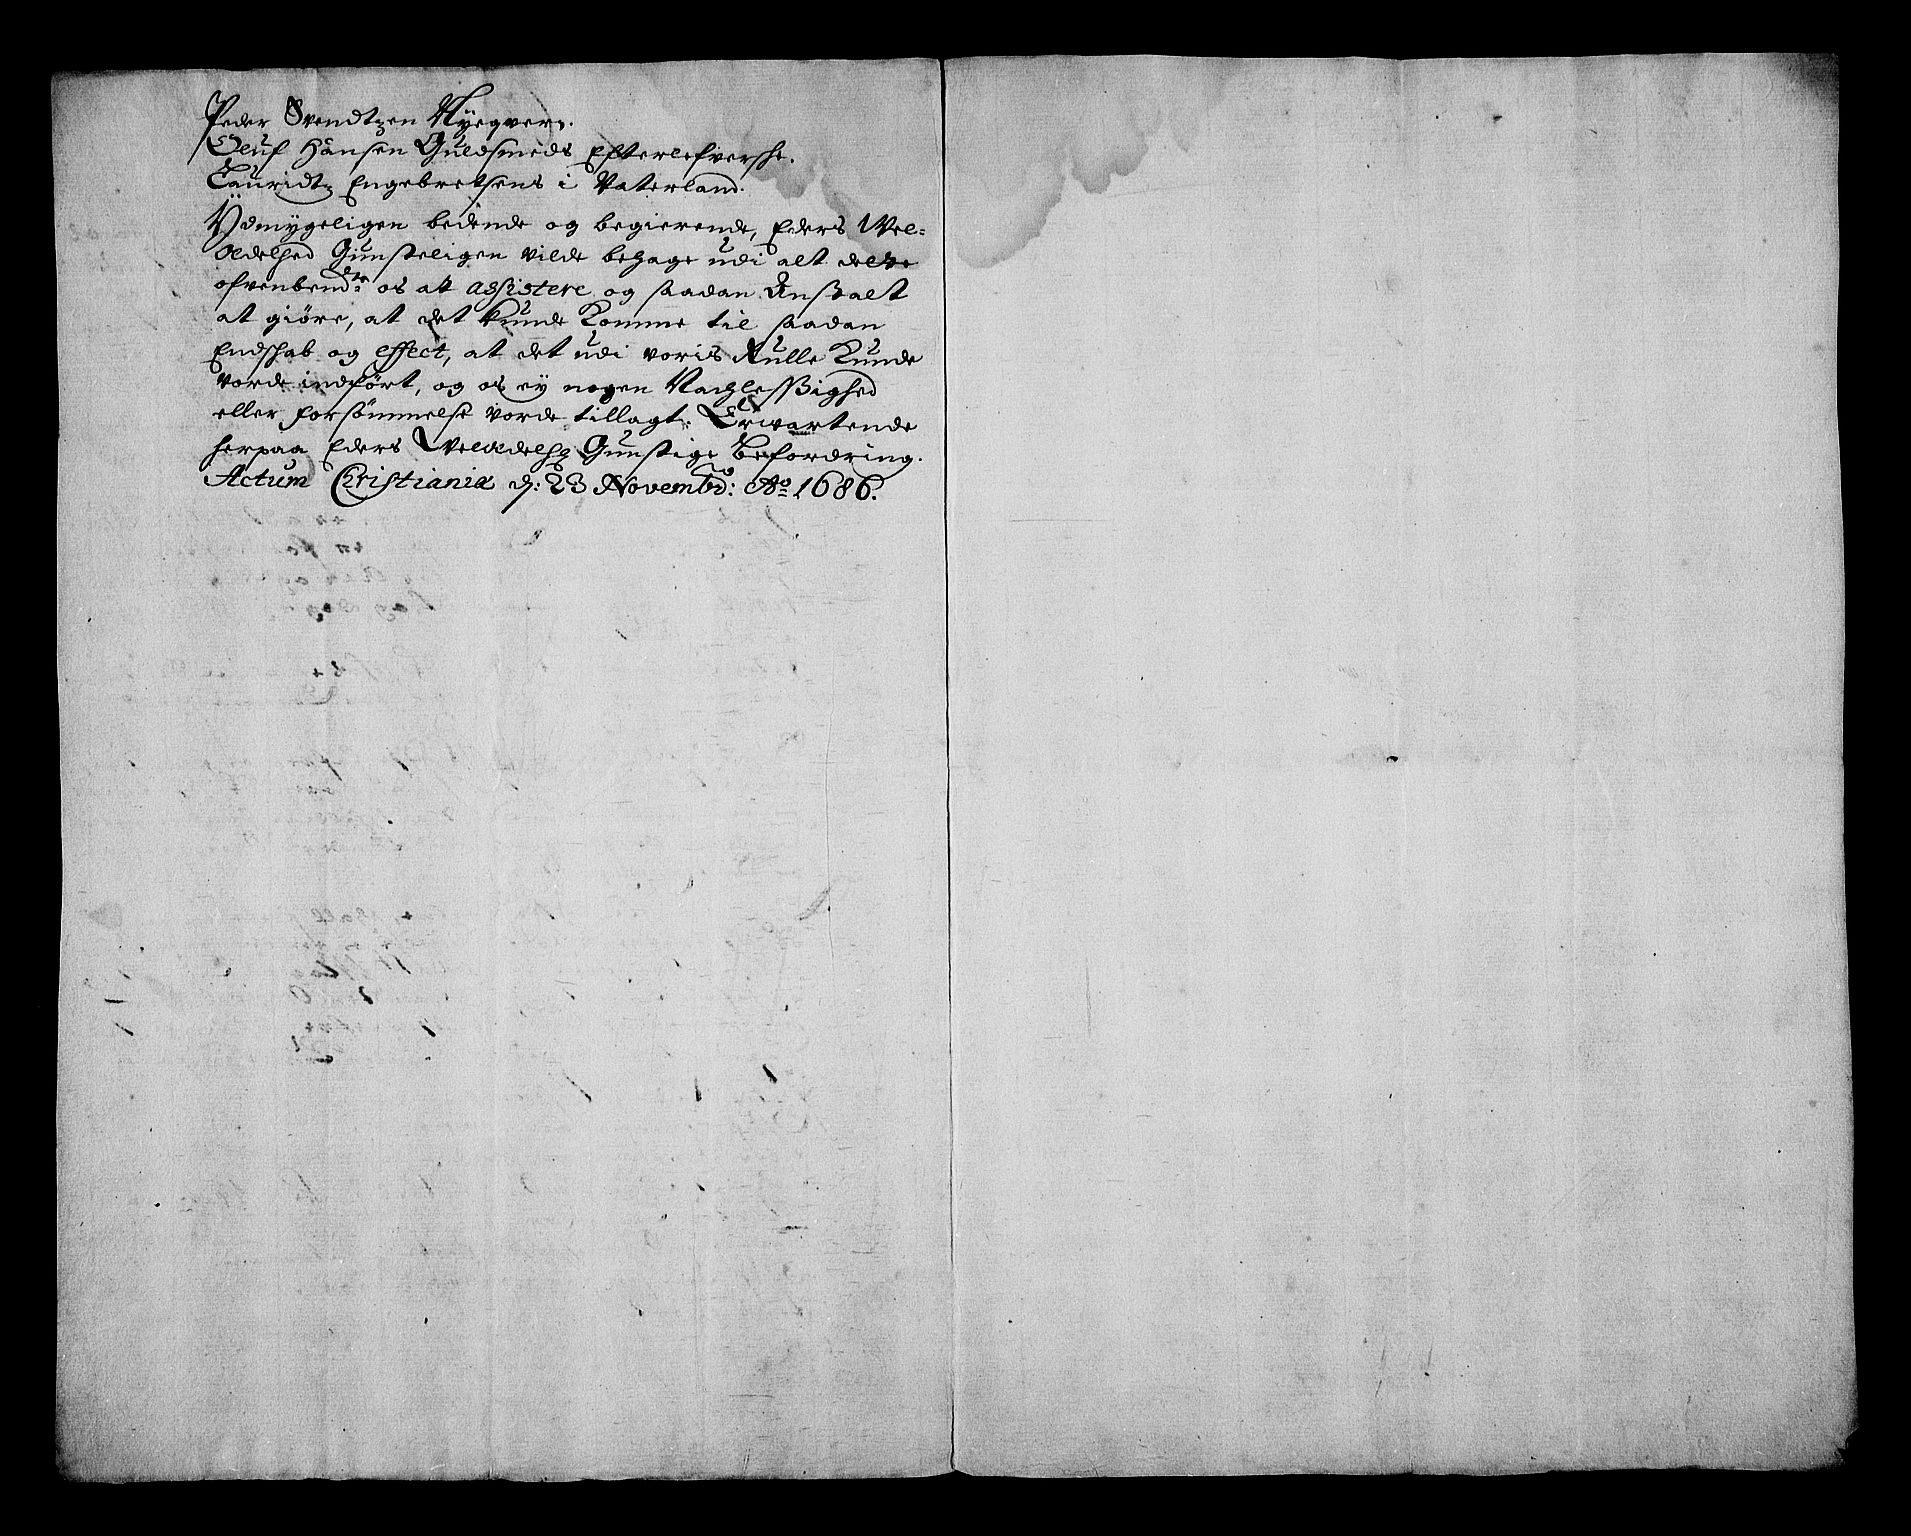 Peder Svendtzen Nyeqvern.
Oluf Hansen Guldsmeds Efterlefverske.
Lauridtz Engebretsens i Vaterland.
Ydmygeligen bedende og begierende, Eders Wel=
Ædelhed Gunsteligen vilde behage udi alt dette
ofvenbendte os at assistere og saadan Anstalt
at giöre, at det kunde Komme til saadan
Endskab og effect, at det udi voris Rulle Kunde
vorde indfört, og os ey nogen Nachlessighed
eller forsömmelse vorde tillagt. Erwartende
herpaa Eders WelÆdelhs Gunstige Befordring.
Actum Christianiæ d: 23 Novembr: Ao 1686.